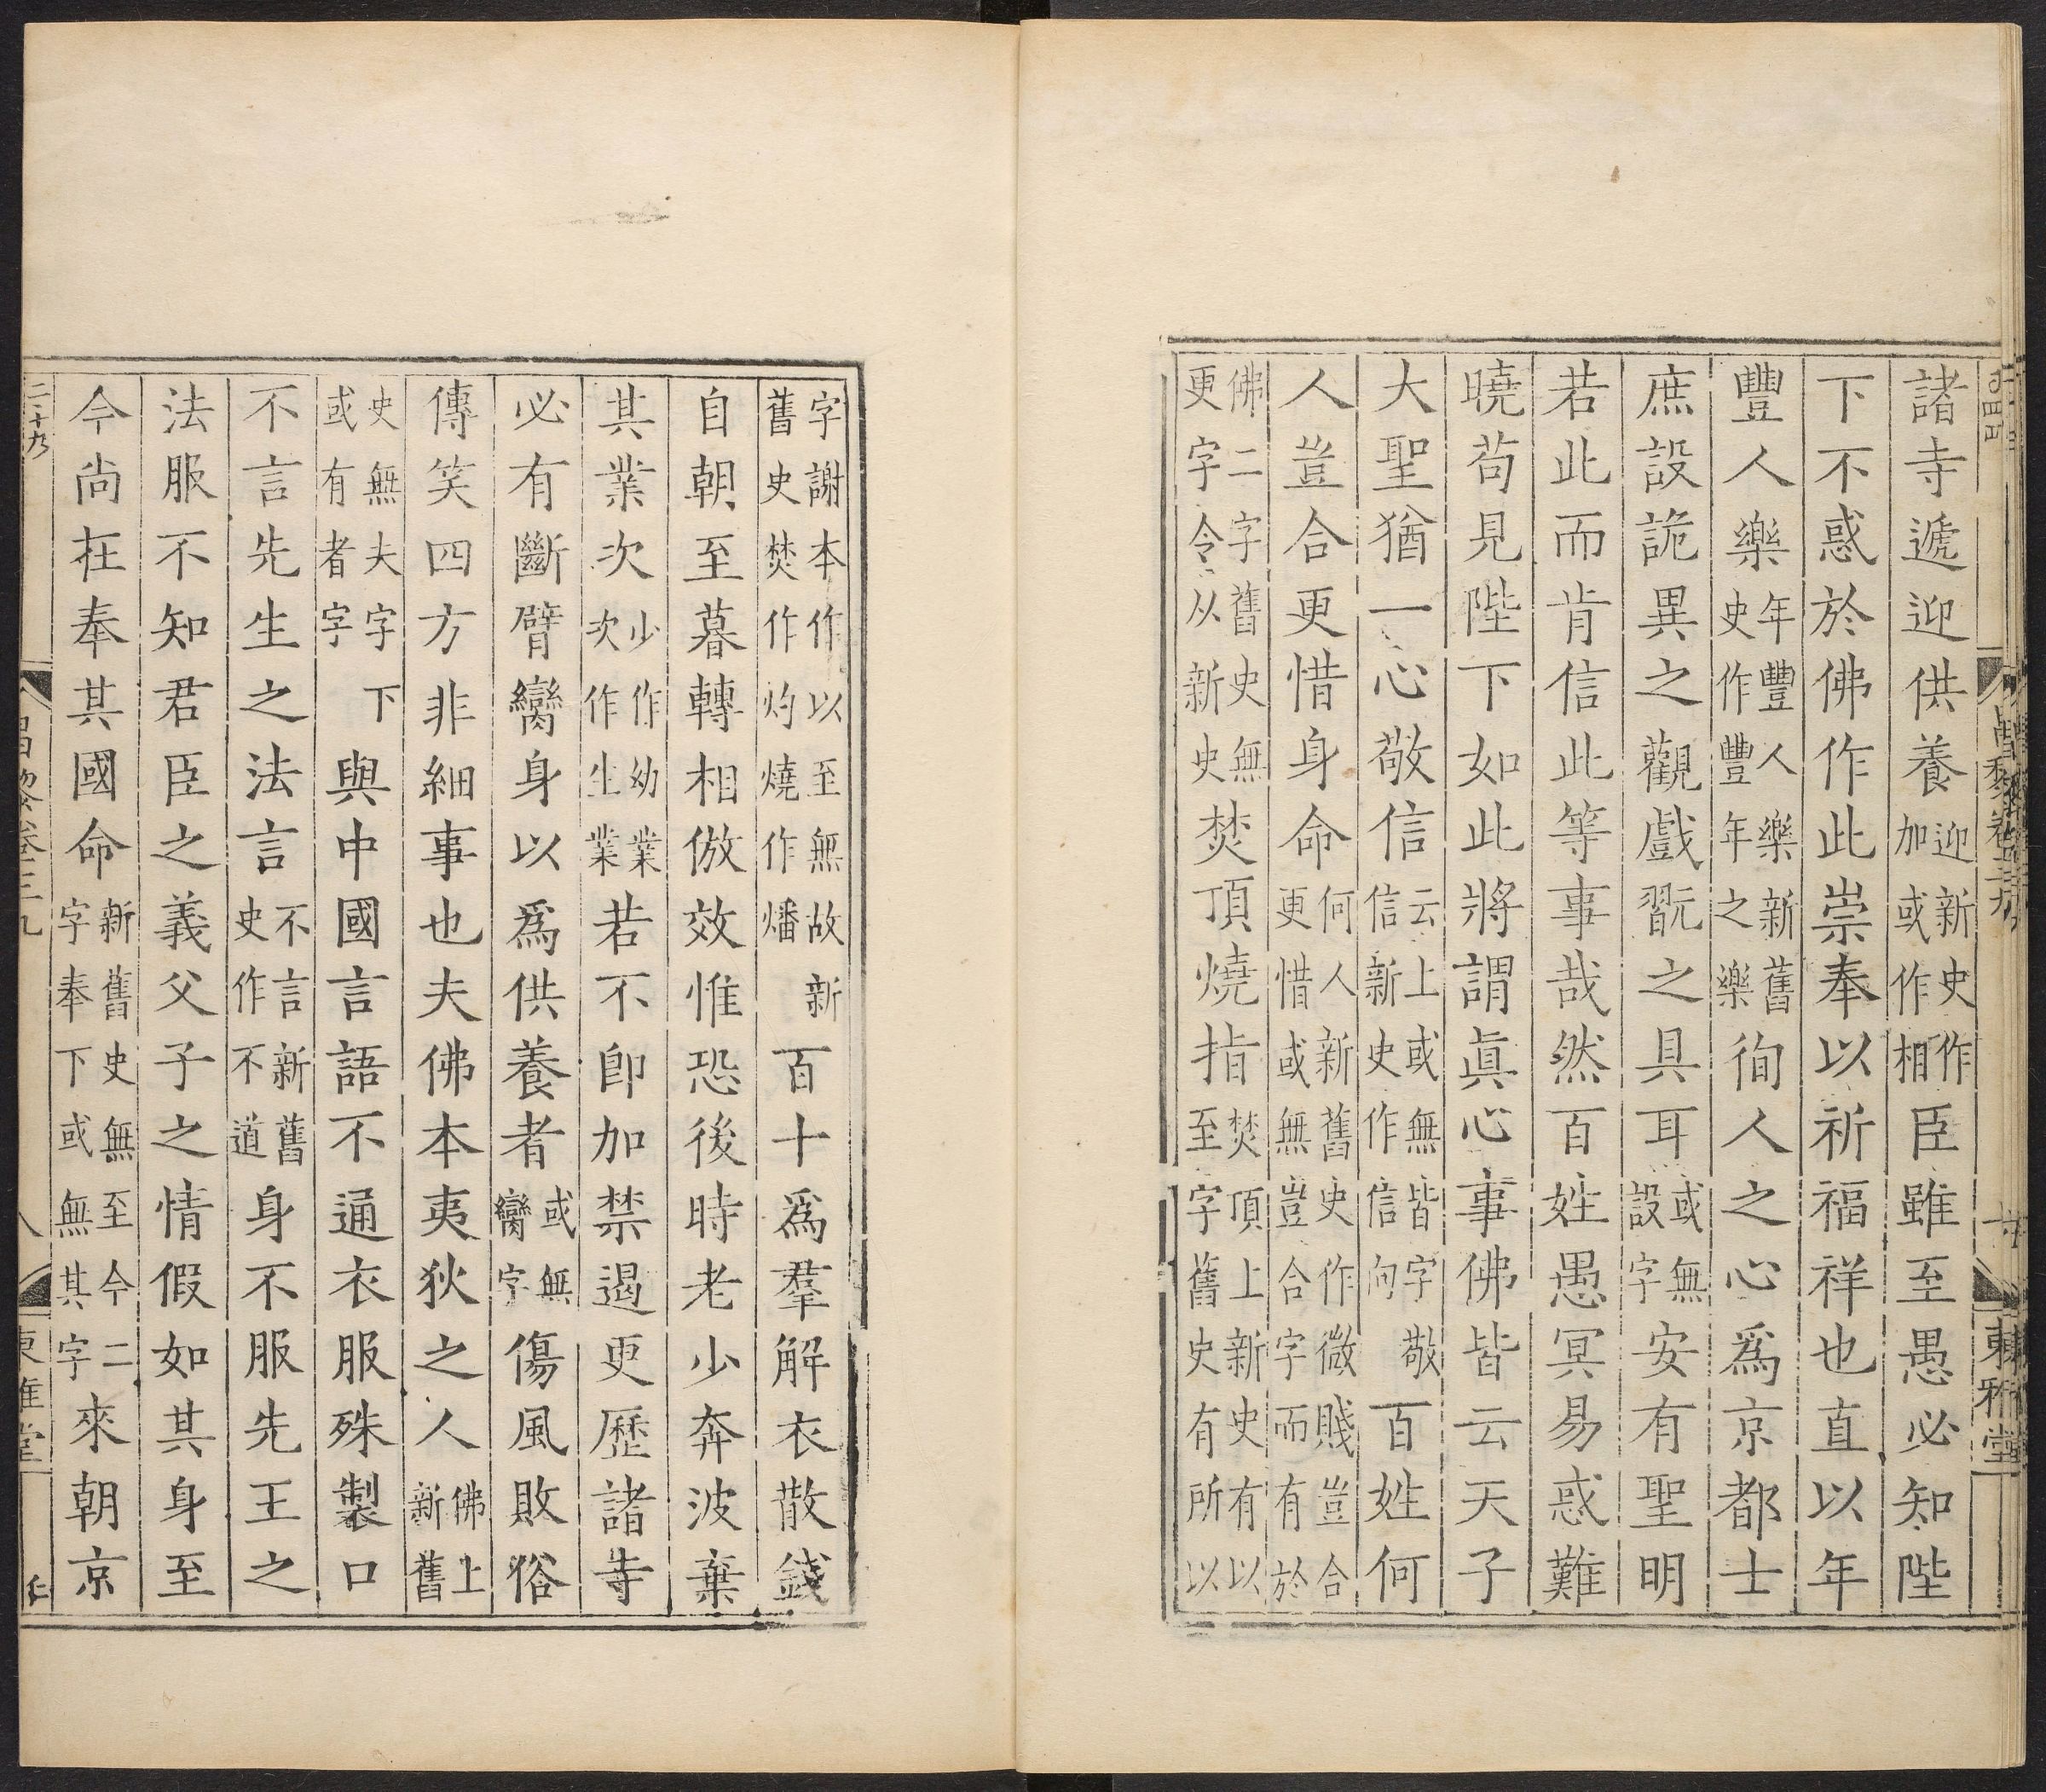 諸寺遞迎供養迎新史作加或作相臣雖至愚必知陛
下不惑於佛作此崇奉以祈福祥也直以年
豐人樂年豐人樂新舊史作豐年之樂徇人之心爲京都士
庶設詭異之觀戲翫之具耳或無設字安有聖明
若此而肯信此等事哉然百姓愚冥易惑難
曉苟見陛下如此將謂眞心事佛皆云天子
大聖猶一心敬信云上或無皆字敬信新史作信向百姓何
人豈合更惜身命何人新舊史作微賤豈合更惜或無豈合字而有於
佛二字舊史無更字令从新史焚頂燒指焚頂上新史有以至字舊史有所以
字謝本作以至無故新舊史焚作灼燒作燔百十爲羣解衣散錢
自朝至暮轉相倣效惟恐後時老少奔波棄
其業次少作幼業次作生業若不卽加禁遏更歷諸寺
必有斷臂臠身以爲供養者或無臠字傷風敗俗
傳笑四方非細事也夫佛本夷狄之人佛上新舊
史無夫字下或有者字與中國言語不通衣服殊製口
不言先生之法言不言新舊史作不道身不服先王之
法服不知君臣之義父子之情假如其身至
今尚在奉其國命新舊史無至今二字奉下或無其字來朝京
二十九
昌黎卷三九
八
東雅堂
昌黎卷三九
東雅堂